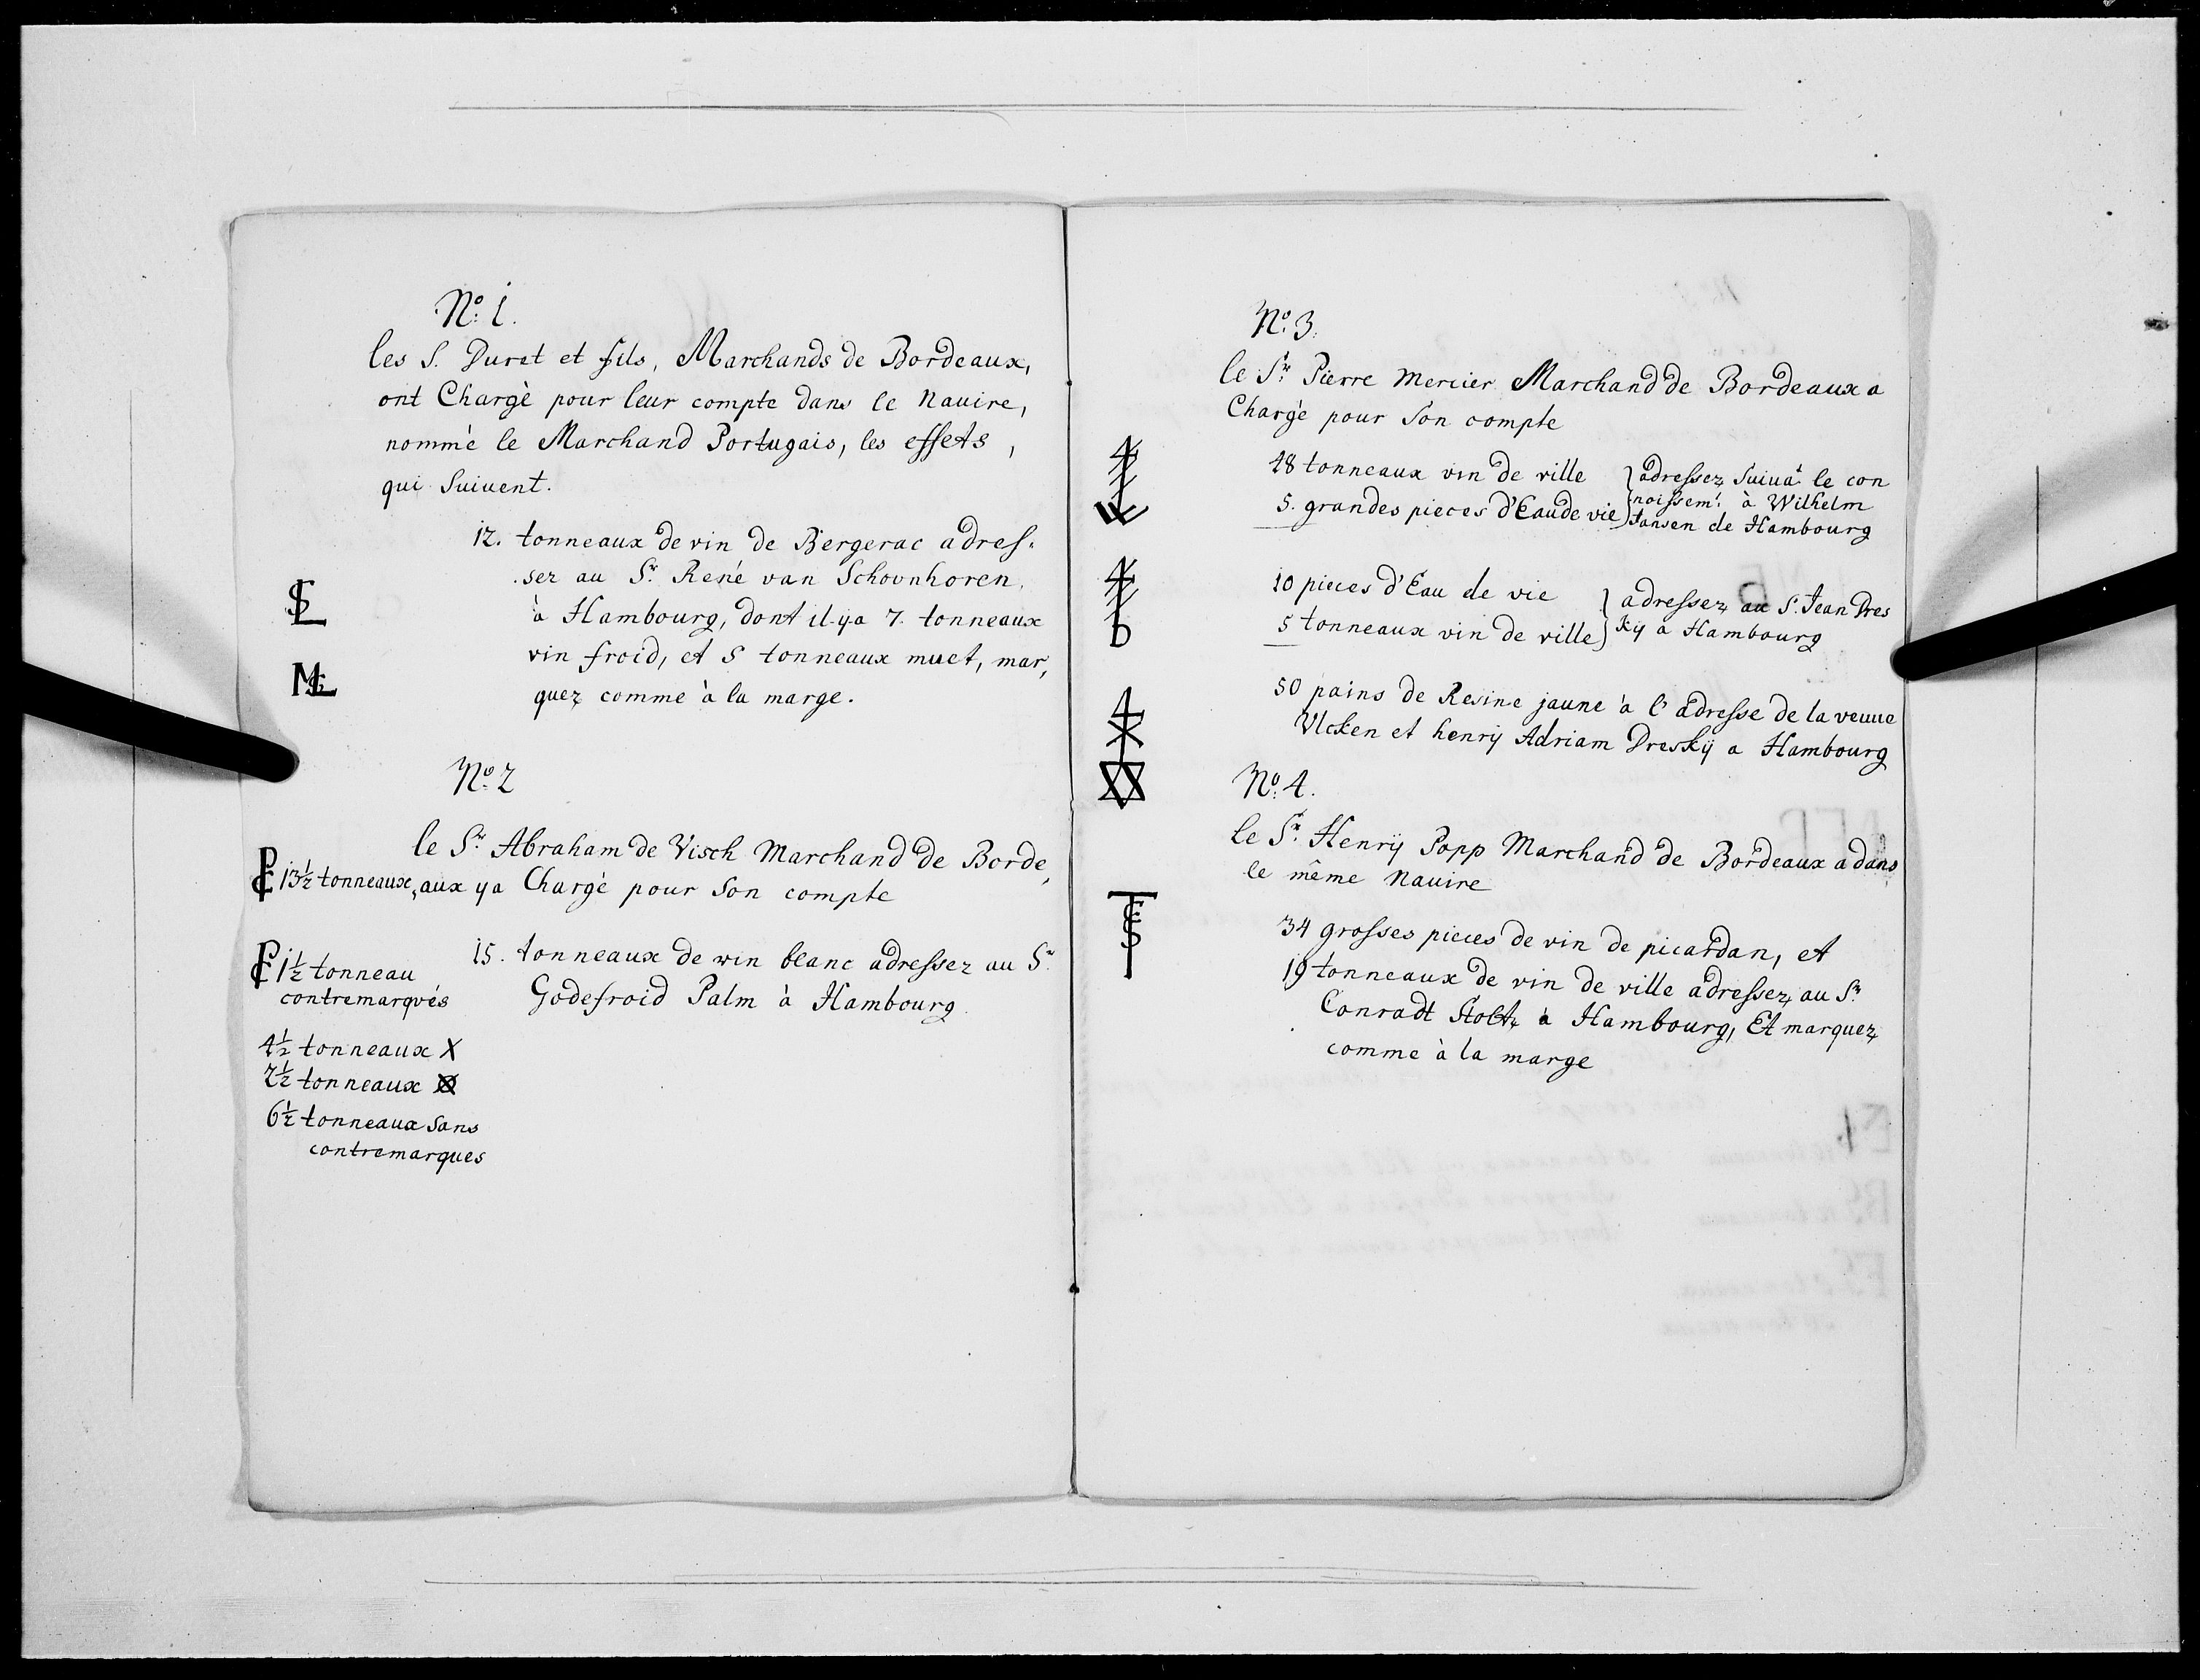 No: 1.
les S. Duret et fils, Marchands de Bordeaux,
ont Chargè pour leur compte dans le Nauire,
nommé le Marchand Portugais, les effets,
qui Suiuent.
12. tonneaux de vin de Bergerac adres-
ser au Sr. René van Schoonhoren,
à Hambourg, dont il y a 7. tonneaux
vin froid, et 5 tonneaux muet, mar,
quez comme à la marge.
SL
No: 2
le Sr. Abraham de Visch Marchand de Borde,
13½ tonneaux, aux ya Chargé pour Son compte
15. tonneaux de vin blanc adressez au Sr.
Godefroid Palm à Hambourg
1½ tonneau
contremarqués
4½ tonneaux X
2½ tonneaux
6½ tonneaux Sans
contremarques
No: 3.
le Sr. Pierre Mercier Marchand de Bordeaux a
Chargé pour Son compte
48 tonneaux vin de ville } adressez Suiuat le con
5. grandes pieces d'Eau de vie } noissemt. à Wilhelm
Jansen de Hambourg
10 pieces d'Eau de vie } adressez au S. Jean Dres
5 tonneaux vin de ville } kÿ a Hambourg
50 pains de Resine jaune à l'adresse de la veuue
Vlcken et henrÿ Adriam Dreskÿ a Hambourg
No: 4.
le Sr. Henrÿ Popp Marchand de Bordeaux a dans
le même Nauire
34 grosses pieces de vin de picardan, et
19 tonneaux de vin de ville adressez au Sr.
Conradt Stoltz à Hambourg, Et marquez
comme à la marge